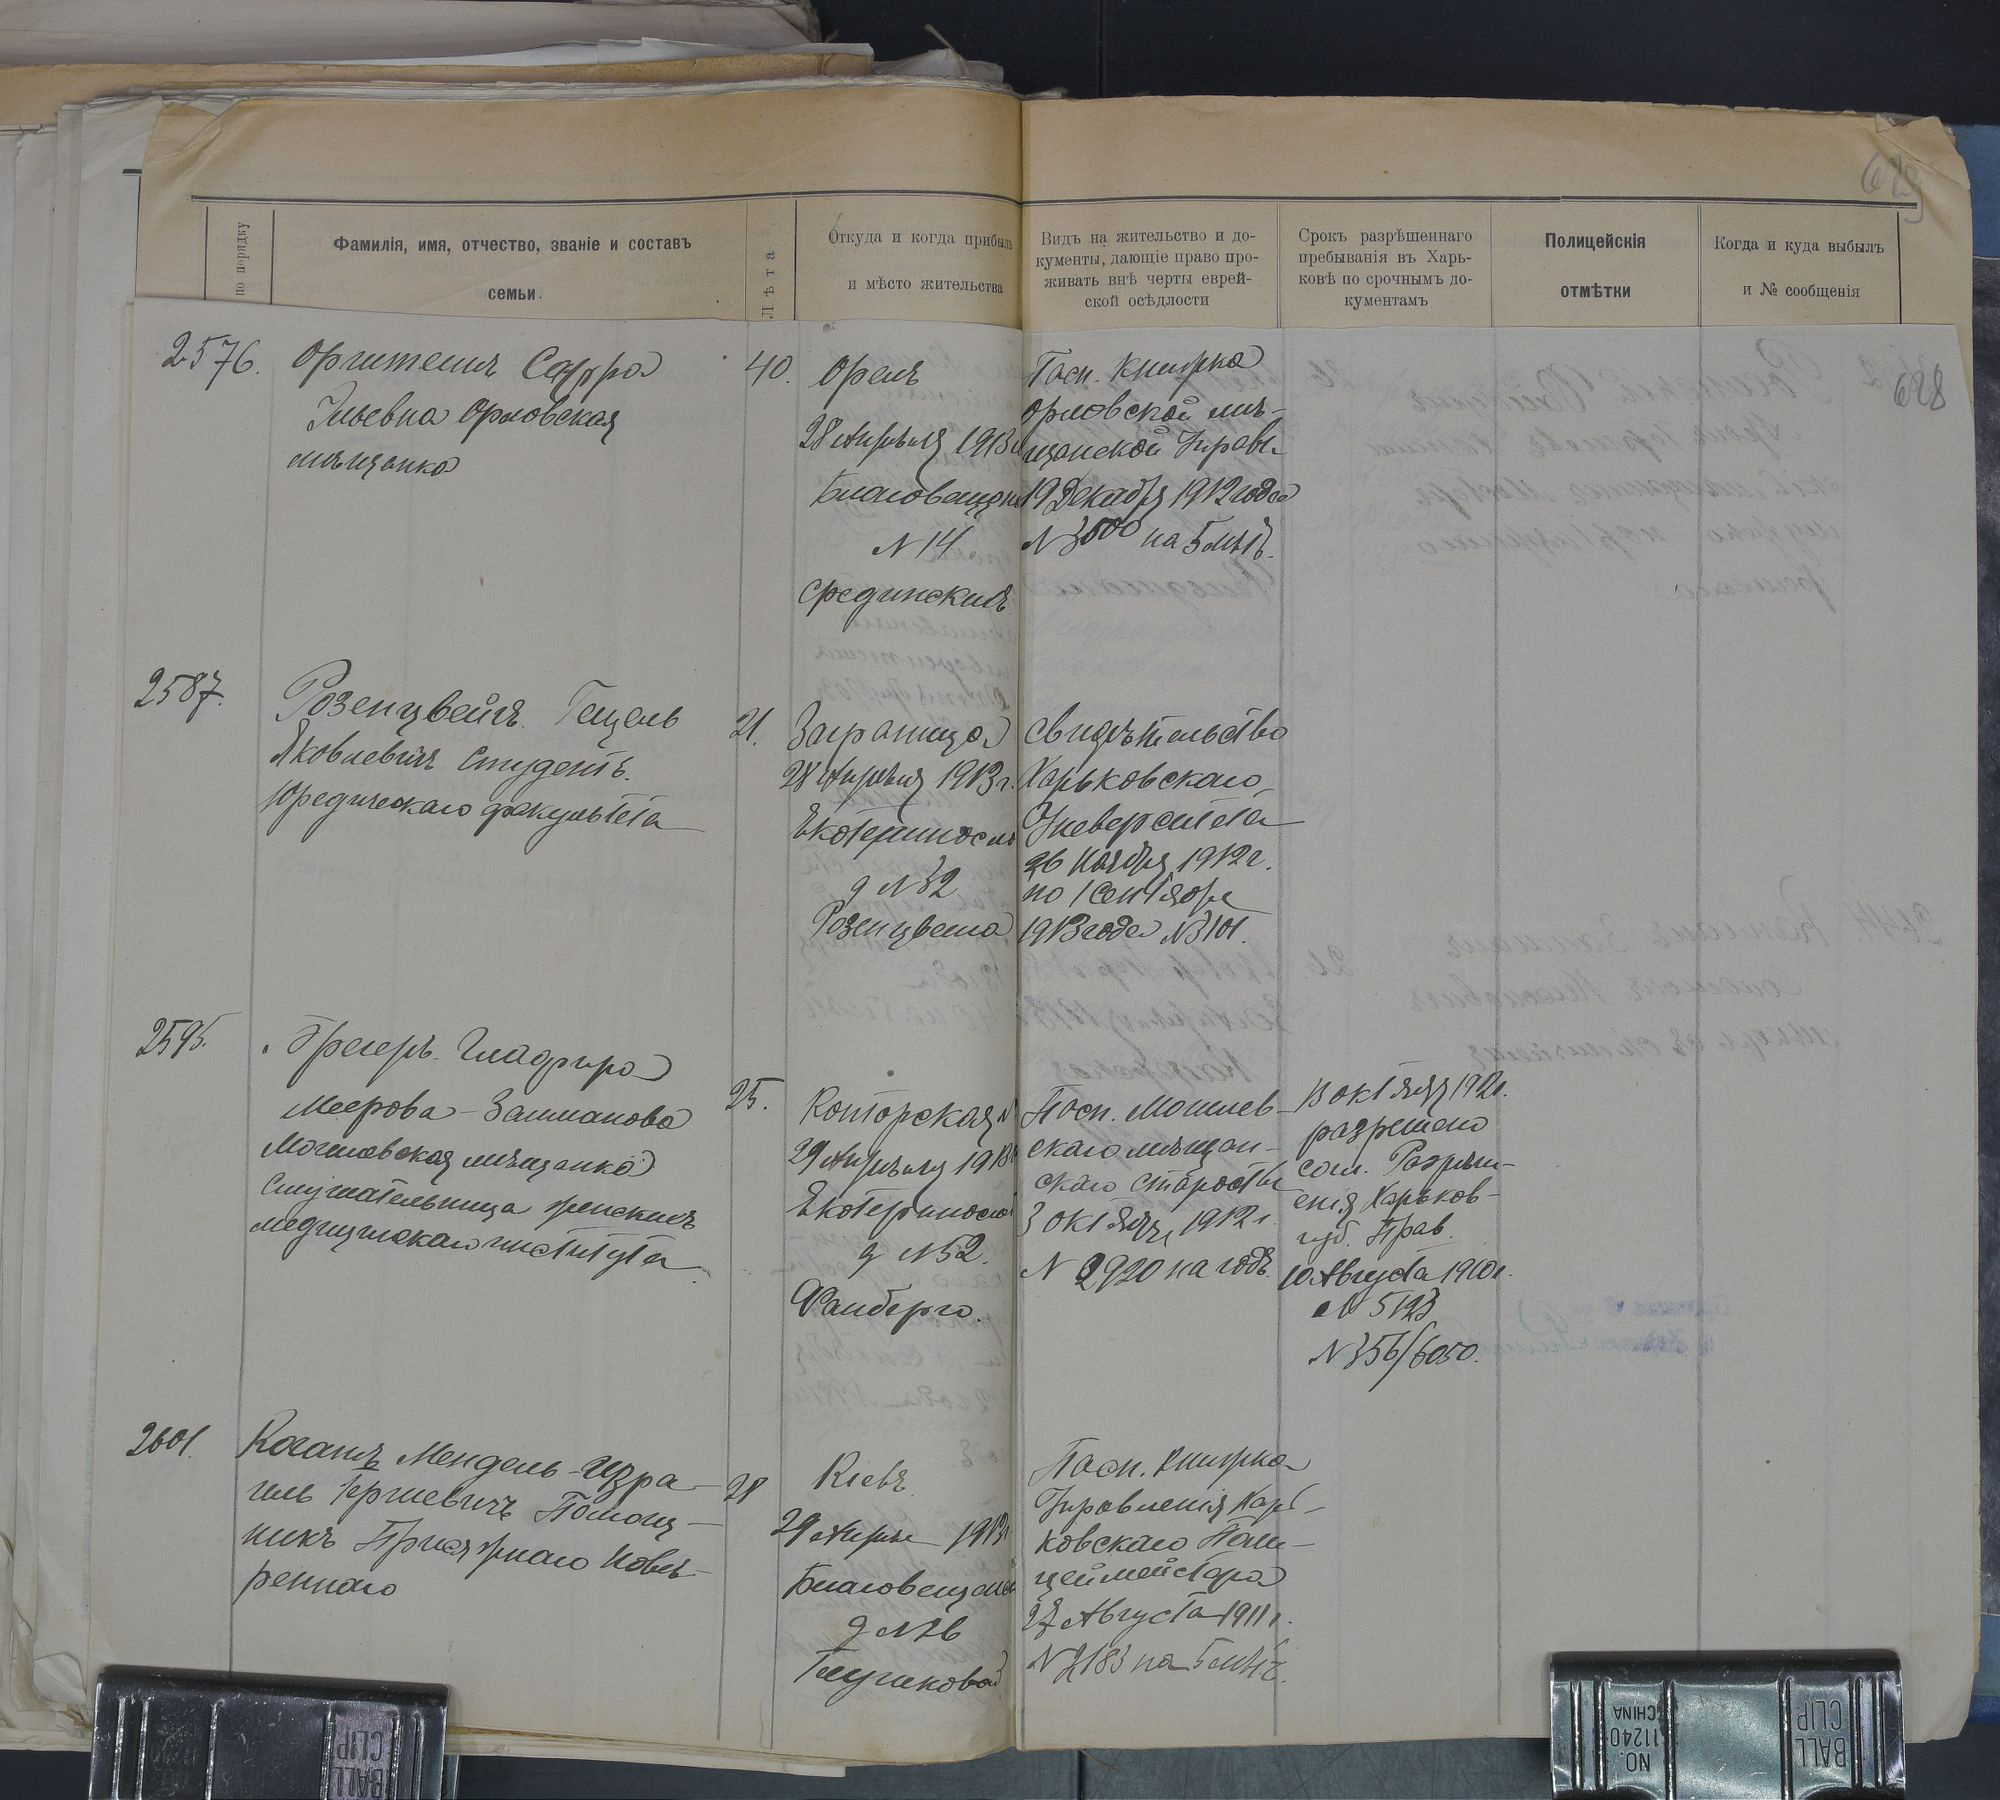 629
по порядку
Фамилія, имя, отчество, званіе и составъ
семьи.
Лѣта
Откуда и когда прибылъ
и мѣсто жительства
Видъ на жительство и до-
кументы, дающіе право про-
живать внѣ черты еврей-
ской осѣдлости
Срокъ разрѣшеннаго
пребыванія въ Харь-
ковѣ по срочнымъ до-
кументамъ
Полицейскія
отмѣтки
Когда и куда выбылъ
и № сообщенія
628
2576.
Сарра
Ильевна Орловская
мѣщанка
40.
Орелъ
28 Апрѣля 1913
Благовещенс
№ 14
Срединскихъ
Пасп. книжка
Орловской мѣ-
щанской Управы
19 Декабря 1912 года
№ 3600 на 5 лѣтъ.
2587.
Розенцвейгъ Гецель
Яковлевичъ Студентъ
Юредическаго факультета
21.
Заграница
28 Апрѣля 1913 г.
Екатеринослав
д № 32
Розенцвейга
Свидѣтельство
Харьковскаго
Университета
26 Ноября 1912 г.
по 1 Сентября
1913 года № 3101.
2595.
Грегеръ Гладфира
Меерова-Залманова
Могилевская мѣщанка
Слушательница женскаго
медицинскаго института
25.
Конторская №
29 Апрѣля 1913
Екатеринослав
д № 52.
Файберга.
Пасп. Могилев-
скаго мѣщан-
скаго Старосты
3 Октября 1912 г.
№ 2920 на годъ.
13 Октября 1912 г.
разрешено
согл. Разрѣш-
енія Харьков-
губ. Прав.
10 Августа 1910 г.
№ 5123
№ 356/6050.
2601.
Коганъ Мендель-Изра-
иль Гершевичъ Помощ-
никъ Присяжнаго Повѣ-
реннаго
28
Кіевъ
29 Апрѣля 1913
Благовещенск
д № 26
Глушковой
Пасп. книжка
Управленія Харь-
ковскаго Поли-
цеймейстера
27 Августа 1911 г.
№ 2183 на 5 лѣтъ.
BALL
CLIP
BALL
CLIP
NO.
11240
CHINA